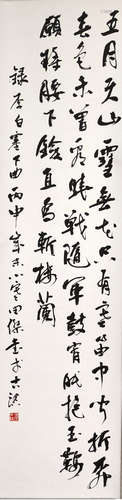 五月天山雪無花只有寒笛中聞折柳
春色未曾看曉戰隨軍鼓宵眠抱玉鞍
願將腰下劍直為斬樓蘭
錄李白塞下曲丙申年末小寒田傑書於